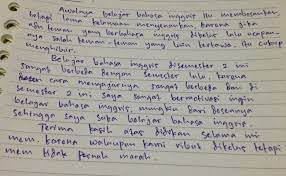 Awalnya belajar bahasa inggris itu membosankan
tetapi lama kelamaan menyenangkan, karena jika
ada teman yang berbahasa inggris dikelas lalu ucapan-
nya salah teman-teman yang lain tertawa. itu cukup
menghibur.
Belajar bahasa inggris disemester 2 ini
sangat berbeda dengan semester lalu, karena
cara mengajarnya sangat berbeda dan di
semester 2 ini saya sangat bermotivasi ingin
belajar bahasa inggris, mungkin dari dosennya
sehingga saya suka belajar bahasa inggris.
Terima kasih atas didikan selama ini
mem. karena walaupun kami ribut dikelas tetapi
mem tidak pernah marah.